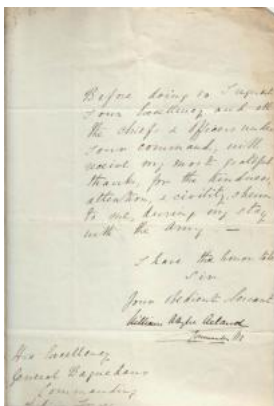 Before doing so I request
Your Excellency and all
the chiefs & officers under
your command, will
receive my most grateful
thanks, for the kindness,
attention, & civility, shown
to me, during my stay
with the army —
I have the honor to be
Sir
Your Obedient Servant
William Acland
His Excellency
General Baquedano
Commanding